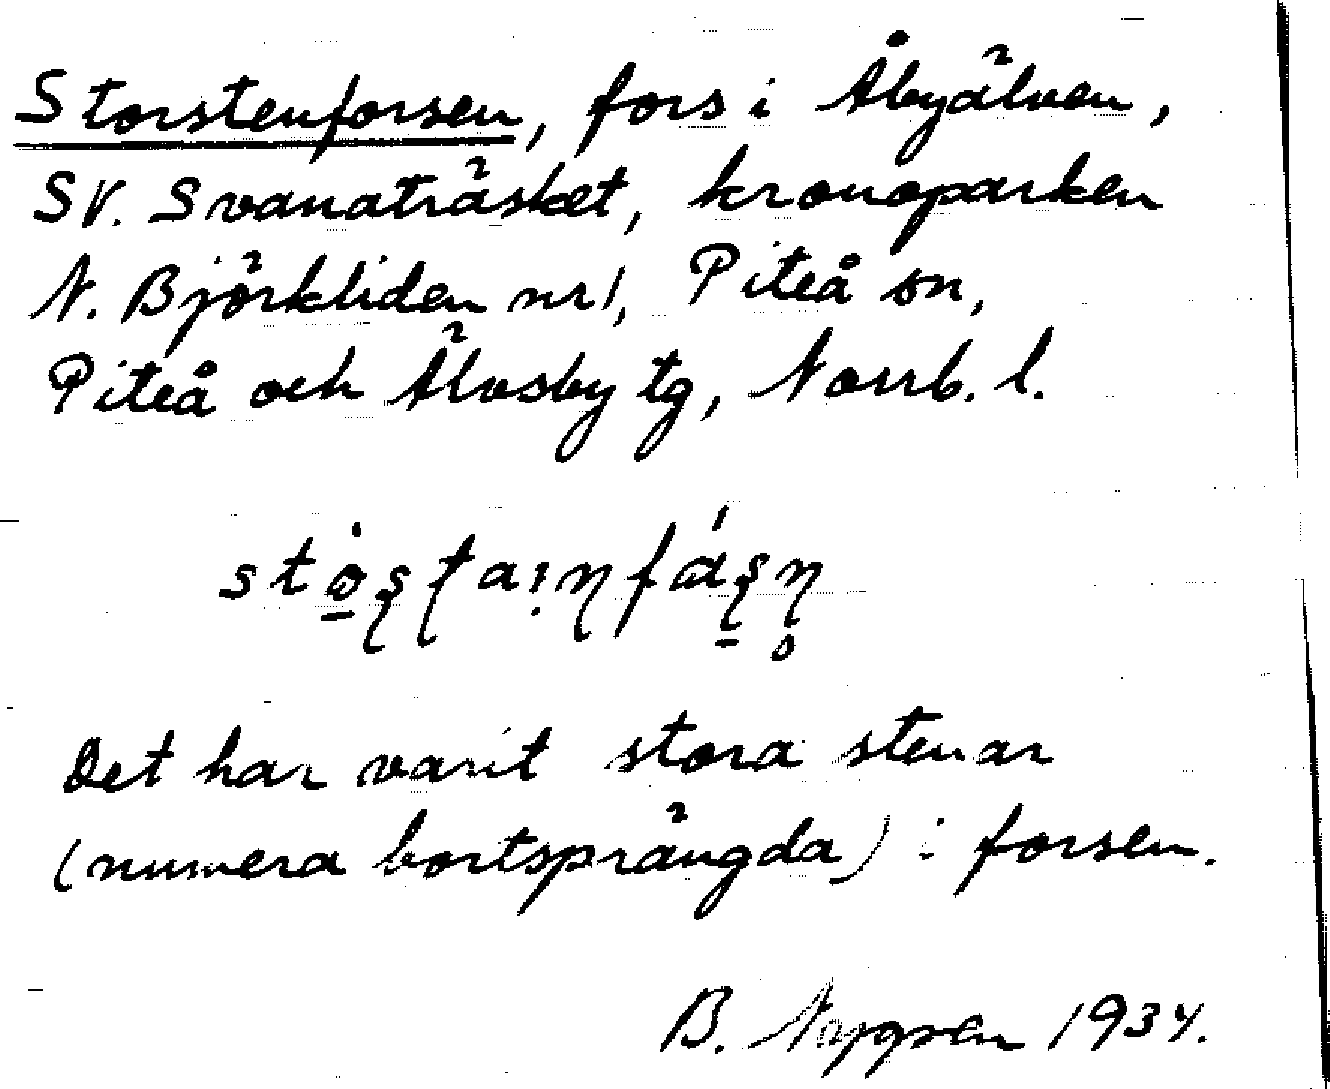 Storstenforsen, fors i Åbyälven,
SV. Svanaträsket, kronoparken
N. Björkliden nr 1, Piteå sn,
Piteå och Älvsby tg, Norrb. l.
Det har varit stora stenar
(numera bortsprängda) i forsen.
B. Nygren 1934.